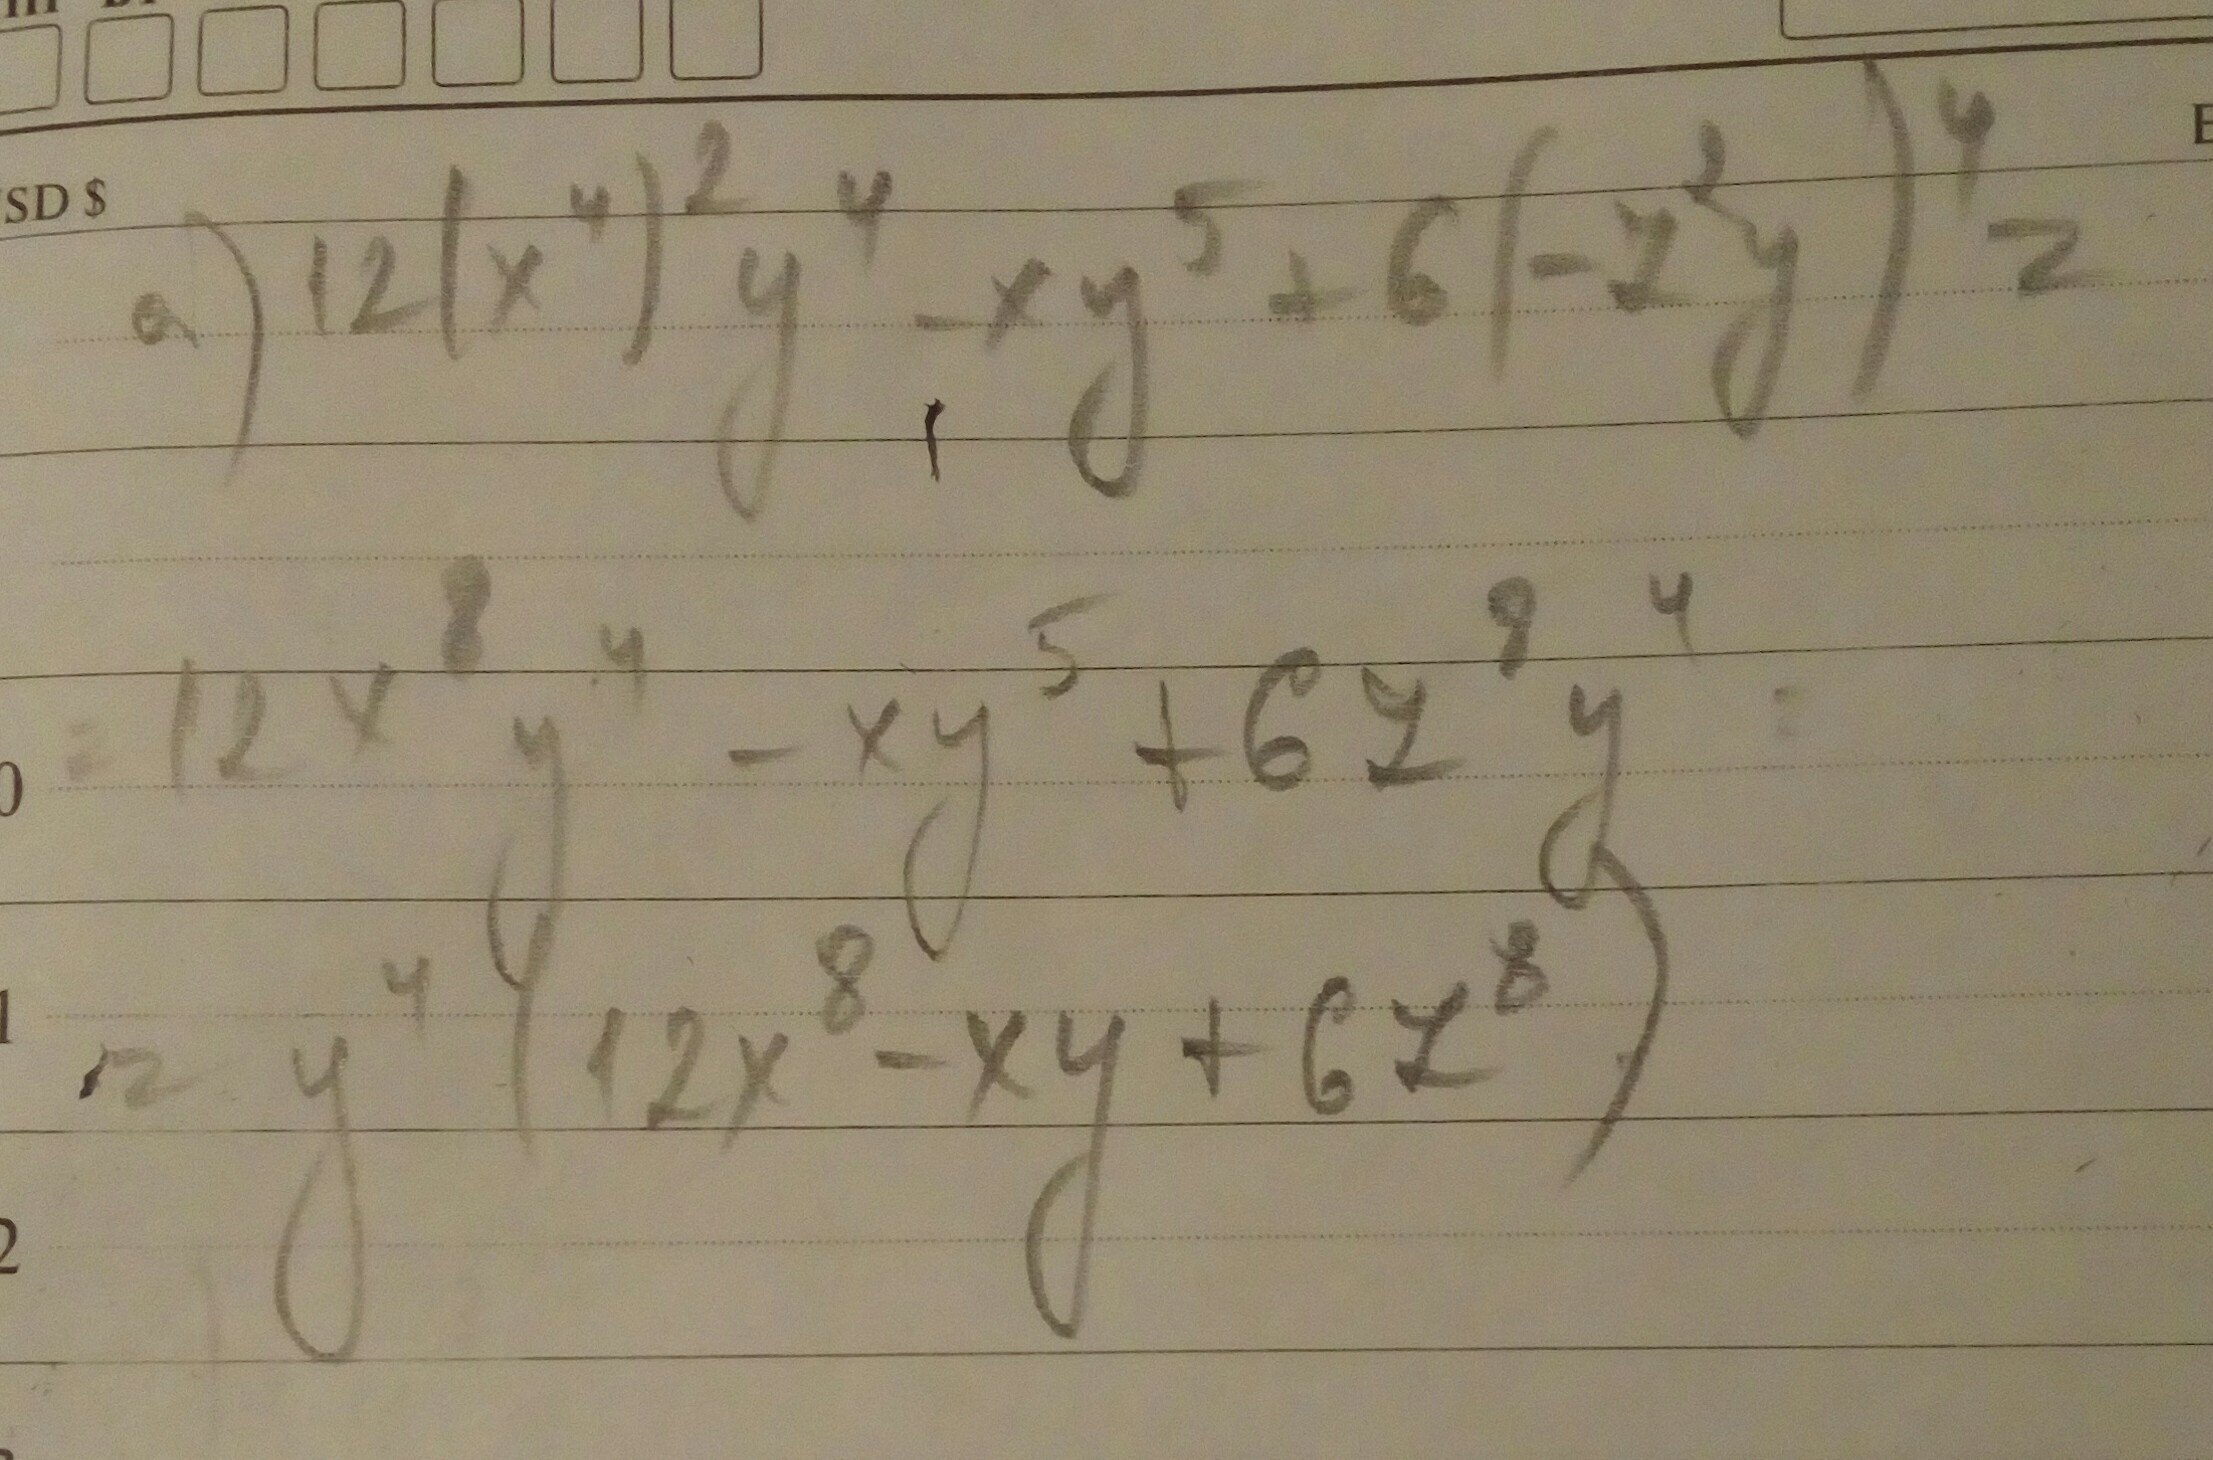 SD $
a) 12(x⁴)² y⁴ - xy⁵ + 6(-z²y)⁴ =
= 12x⁸y⁴ - xy⁵ + 6z⁸y⁴ =
0
1
= y⁴(12x⁸ - xy + 6z⁸)
2